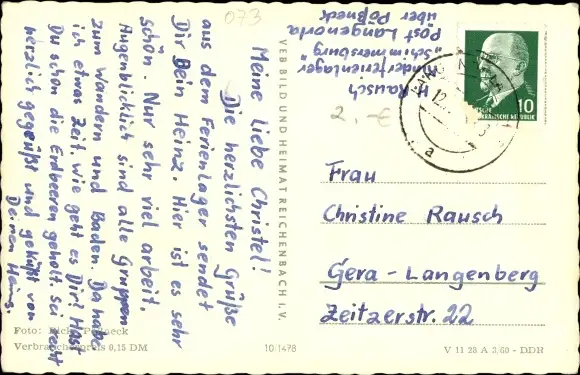 073
Meine liebe Christel!
Die herzlichsten Grüße
aus dem Ferienlager sendet
Dir Dein Heinz. Hier ist es sehr
schön Nur sehr viel arbeit.
Augenblicklich sind alle Gruppen
zum Wandern und Baden. Da habe
ich etwas Zeit. Wie geht es Dir? Hast
Du schon die Erdbeeren geholt. Sei recht
herzlich gegrüßt und geküßt von
Deinen Heinz.
VEB BILD UND HEIMAT REICHENBACH I. V.
H. Rausch
Kinderferienlager
"Schimmersburg"
Post Langenorla
über Pößneck
2,-€
10
DEUTSCHE
DEMOKRATISCHE REPUBLIK
12
a
Frau
Christine Rausch
Gera - Langenberg
Zeitzerstr. 22
Foto: Pößneck
Verbraucherpreis 0,15 DM
10/1478
V 11 28 A 3/60 - DDR